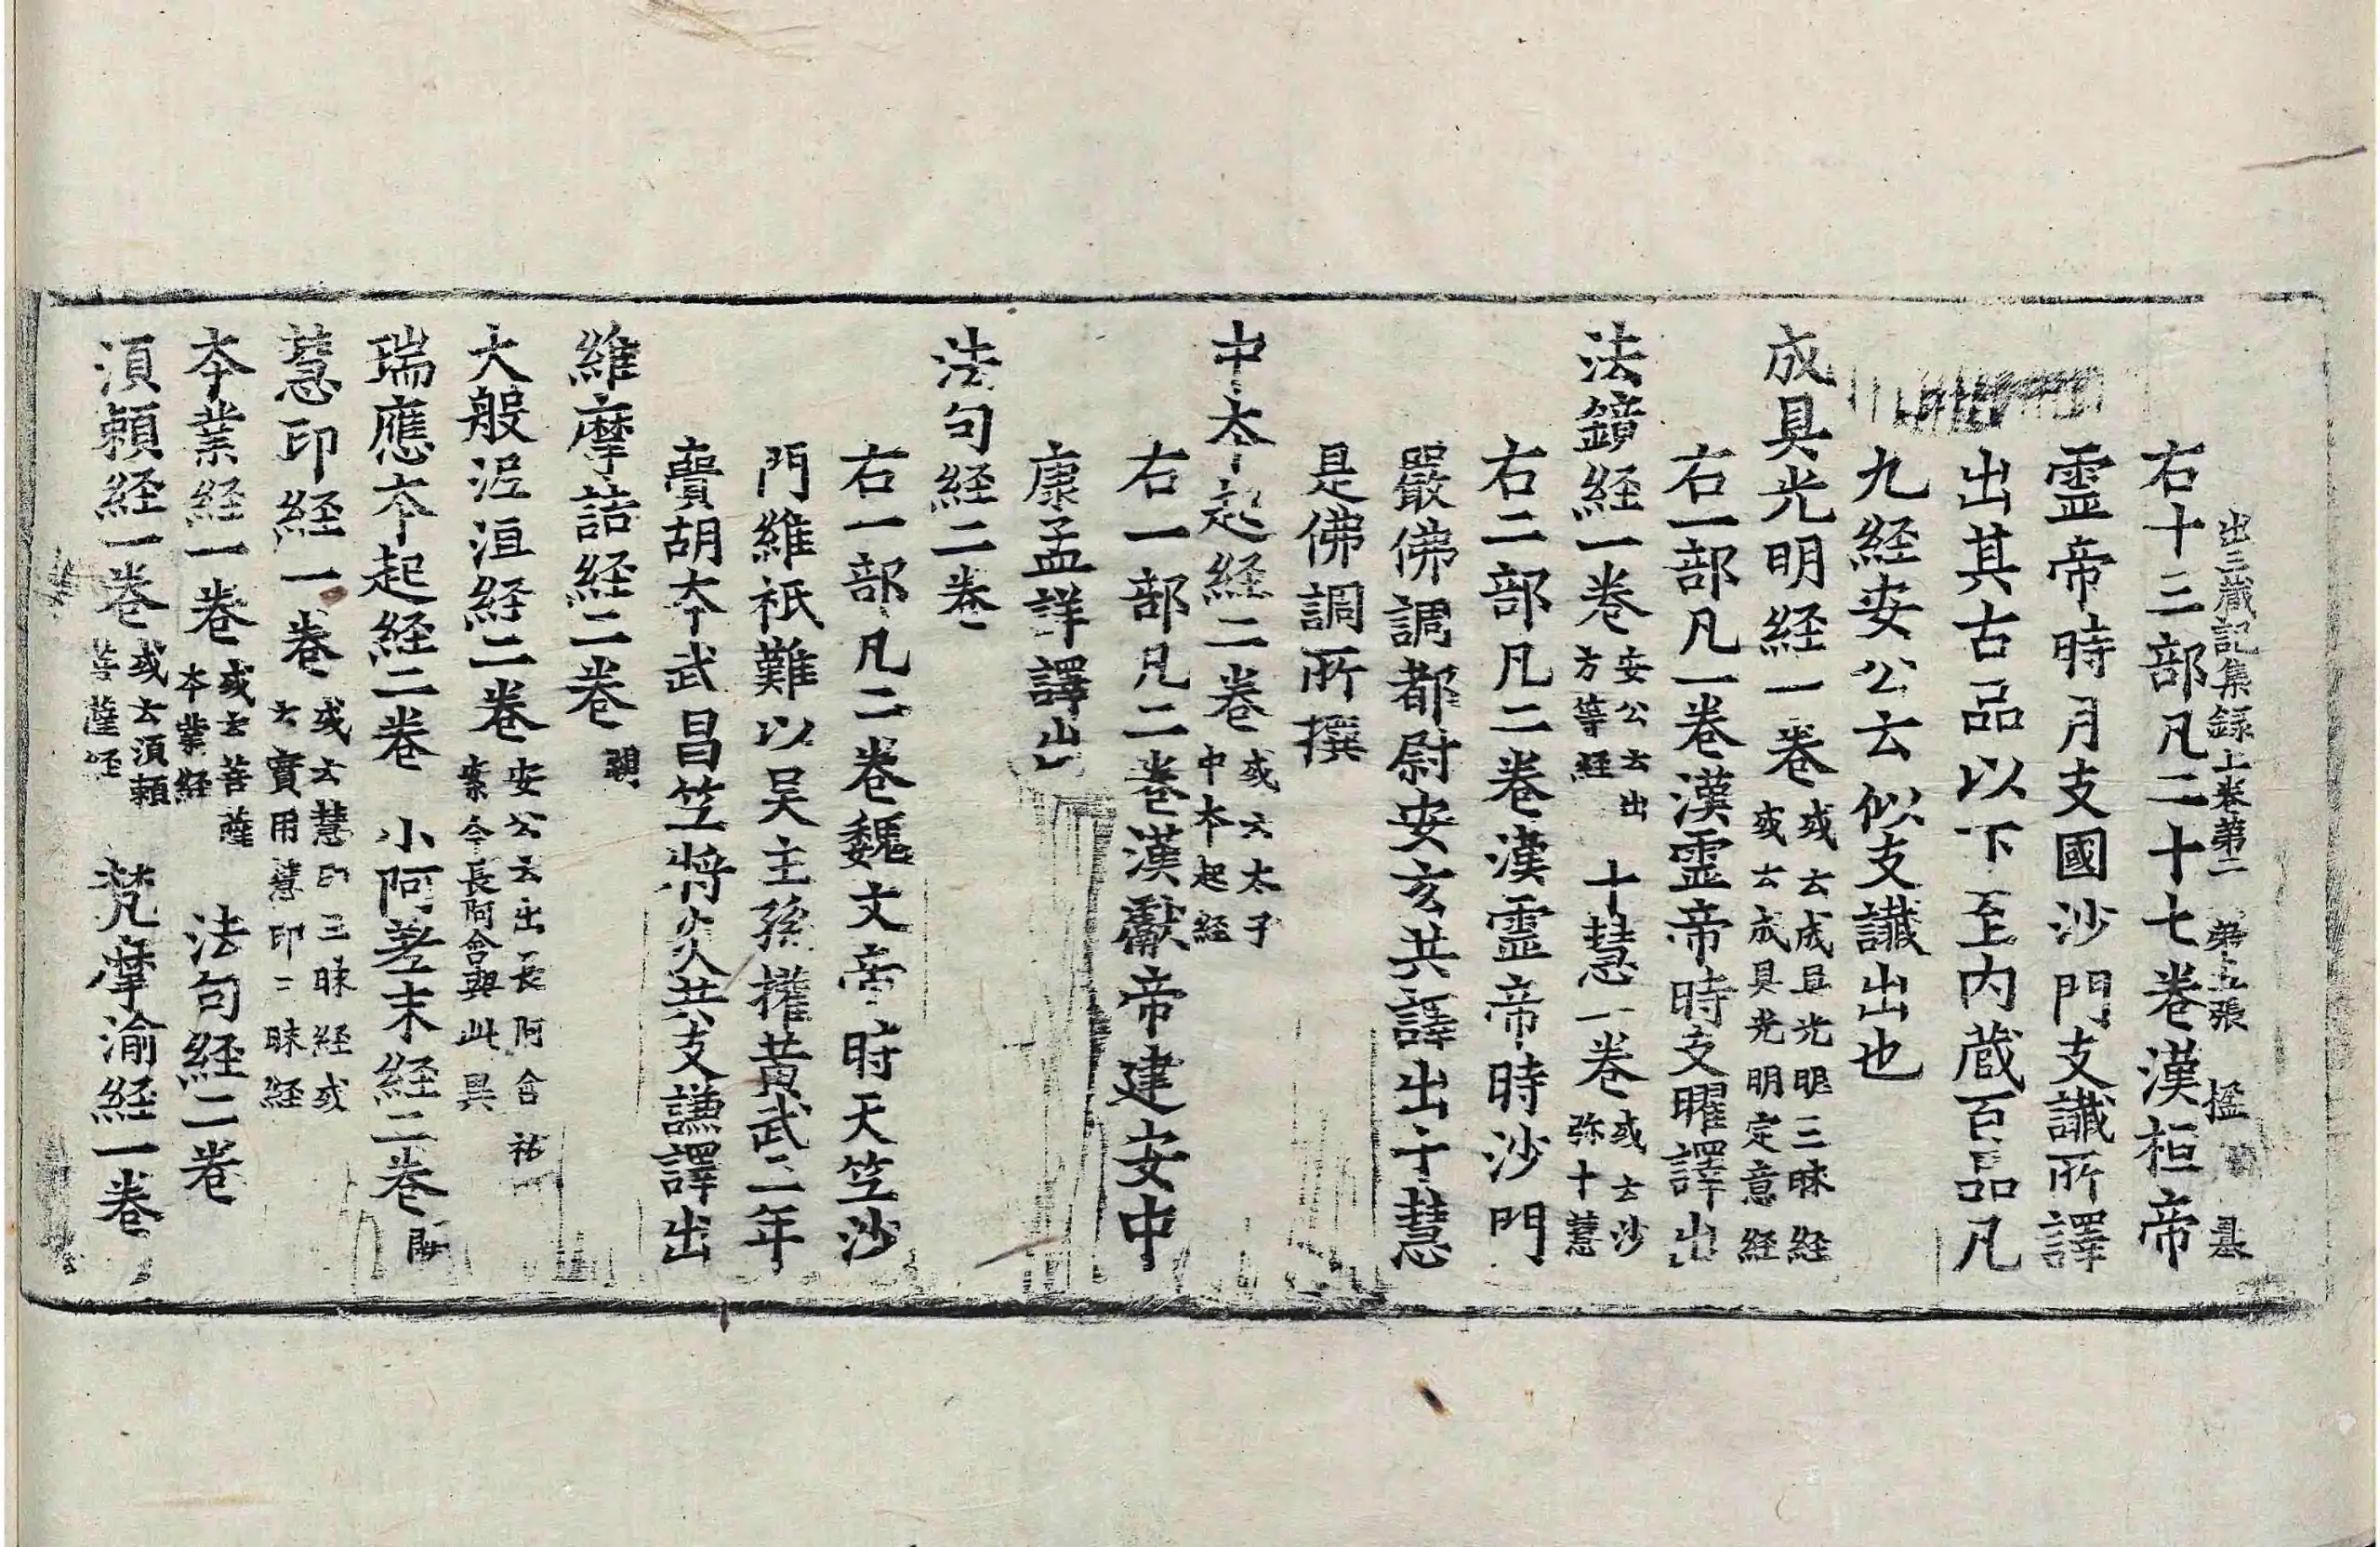 出三藏記集録上卷第二 第五張 楹
右十三部凡二十七卷漢桓帝
霊帝時月支國沙門支讖所譯
出其古品以下至内蔵百品凡
九経安公云似支讖出也
成具光明経一卷 或云成具光明三昧経 或云成具光明定意経
右一部凡一卷漢霊帝時支曜譯出
法鏡経一卷 安公云出 方等経 十慧一卷 或云沙 弥十慧
右二部凡二卷漢霊帝時沙門
嚴佛調都尉安玄共譯出十慧
是佛調所撰
中夲起経二卷 或云太子 中本起経
右一部凡二卷漢獻帝建安中
康孟詳譯出
法句経二卷
右一部凡二卷魏文帝時天竺沙
門維祇難以吴主孫權黄武三年
賷胡夲武昌竺將炎共支謙譯出
維摩詰経二卷 闕
大般泥洹経二卷 安公云出長阿含祐 案今長阿含與此異
瑞應夲起経二卷 小阿差末経二卷 闕
慧印経一卷 或云慧印三昧経或 云寶用慧印三昧経
夲業経一卷 或云菩薩 夲業経 法句経二卷
湏頼経一卷 或云湏頼 菩薩経 梵摩渝経一卷